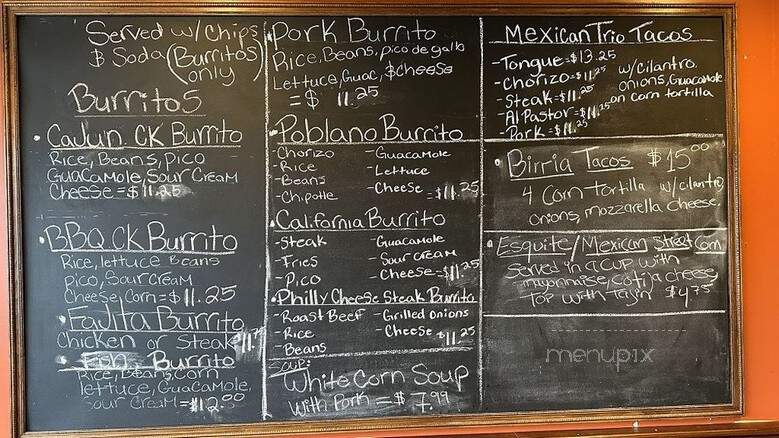 Served w/ Chips
& Soda (Burritos
only)
Burritos
• Cajun CK Burrito
Rice, Beans, Pico
Guacamole, Sour Cream
Cheese = $11.25
• BBQ CK Burrito
Rice, lettuce Beans
Pico, Sour Cream
Cheese, Corn = $11.25
• Fajita Burrito
Chicken or Steak
• Fish Burrito
Rice, Beans, Corn
lettuce, Guacamole,
sour Cream = $12.00
Pork Burrito
Rice, Beans, pico de gallo
Lettuce, Guac, & Cheese
= $ 11.25
• Poblano Burrito
- Chorizo - Guacamole
- Rice - Lettuce
- Beans - Cheese = $11.25
- Chipotle
• California Burrito
- Steak - Guacamole
- Fries - Sour cream
- Pico - Cheese = $11.25
• Philly Cheese Steak Burrito
- Roast Beef - Grilled Onions
- Rice - Cheese $11.25
- Beans
Soup:
White Corn Soup
with Pork = $ 7.99
Mexican Trio Tacos
- Tongue = $13.25
- Chorizo = $11.25 w/ Cilantro,
- Steak = $11.25 onions, Guacamole
- Al Pastor = $11.25 on corn tortilla
- Pork = $11.25
• Birria Tacos $15.00
4 Corn tortilla w/ cilantro,
onions, mozzarella cheese
• Esquite/Mexican Street Corn
Served in a cup with
mayonnaise, cotija cheese
top with Tajin $4.75
menupix